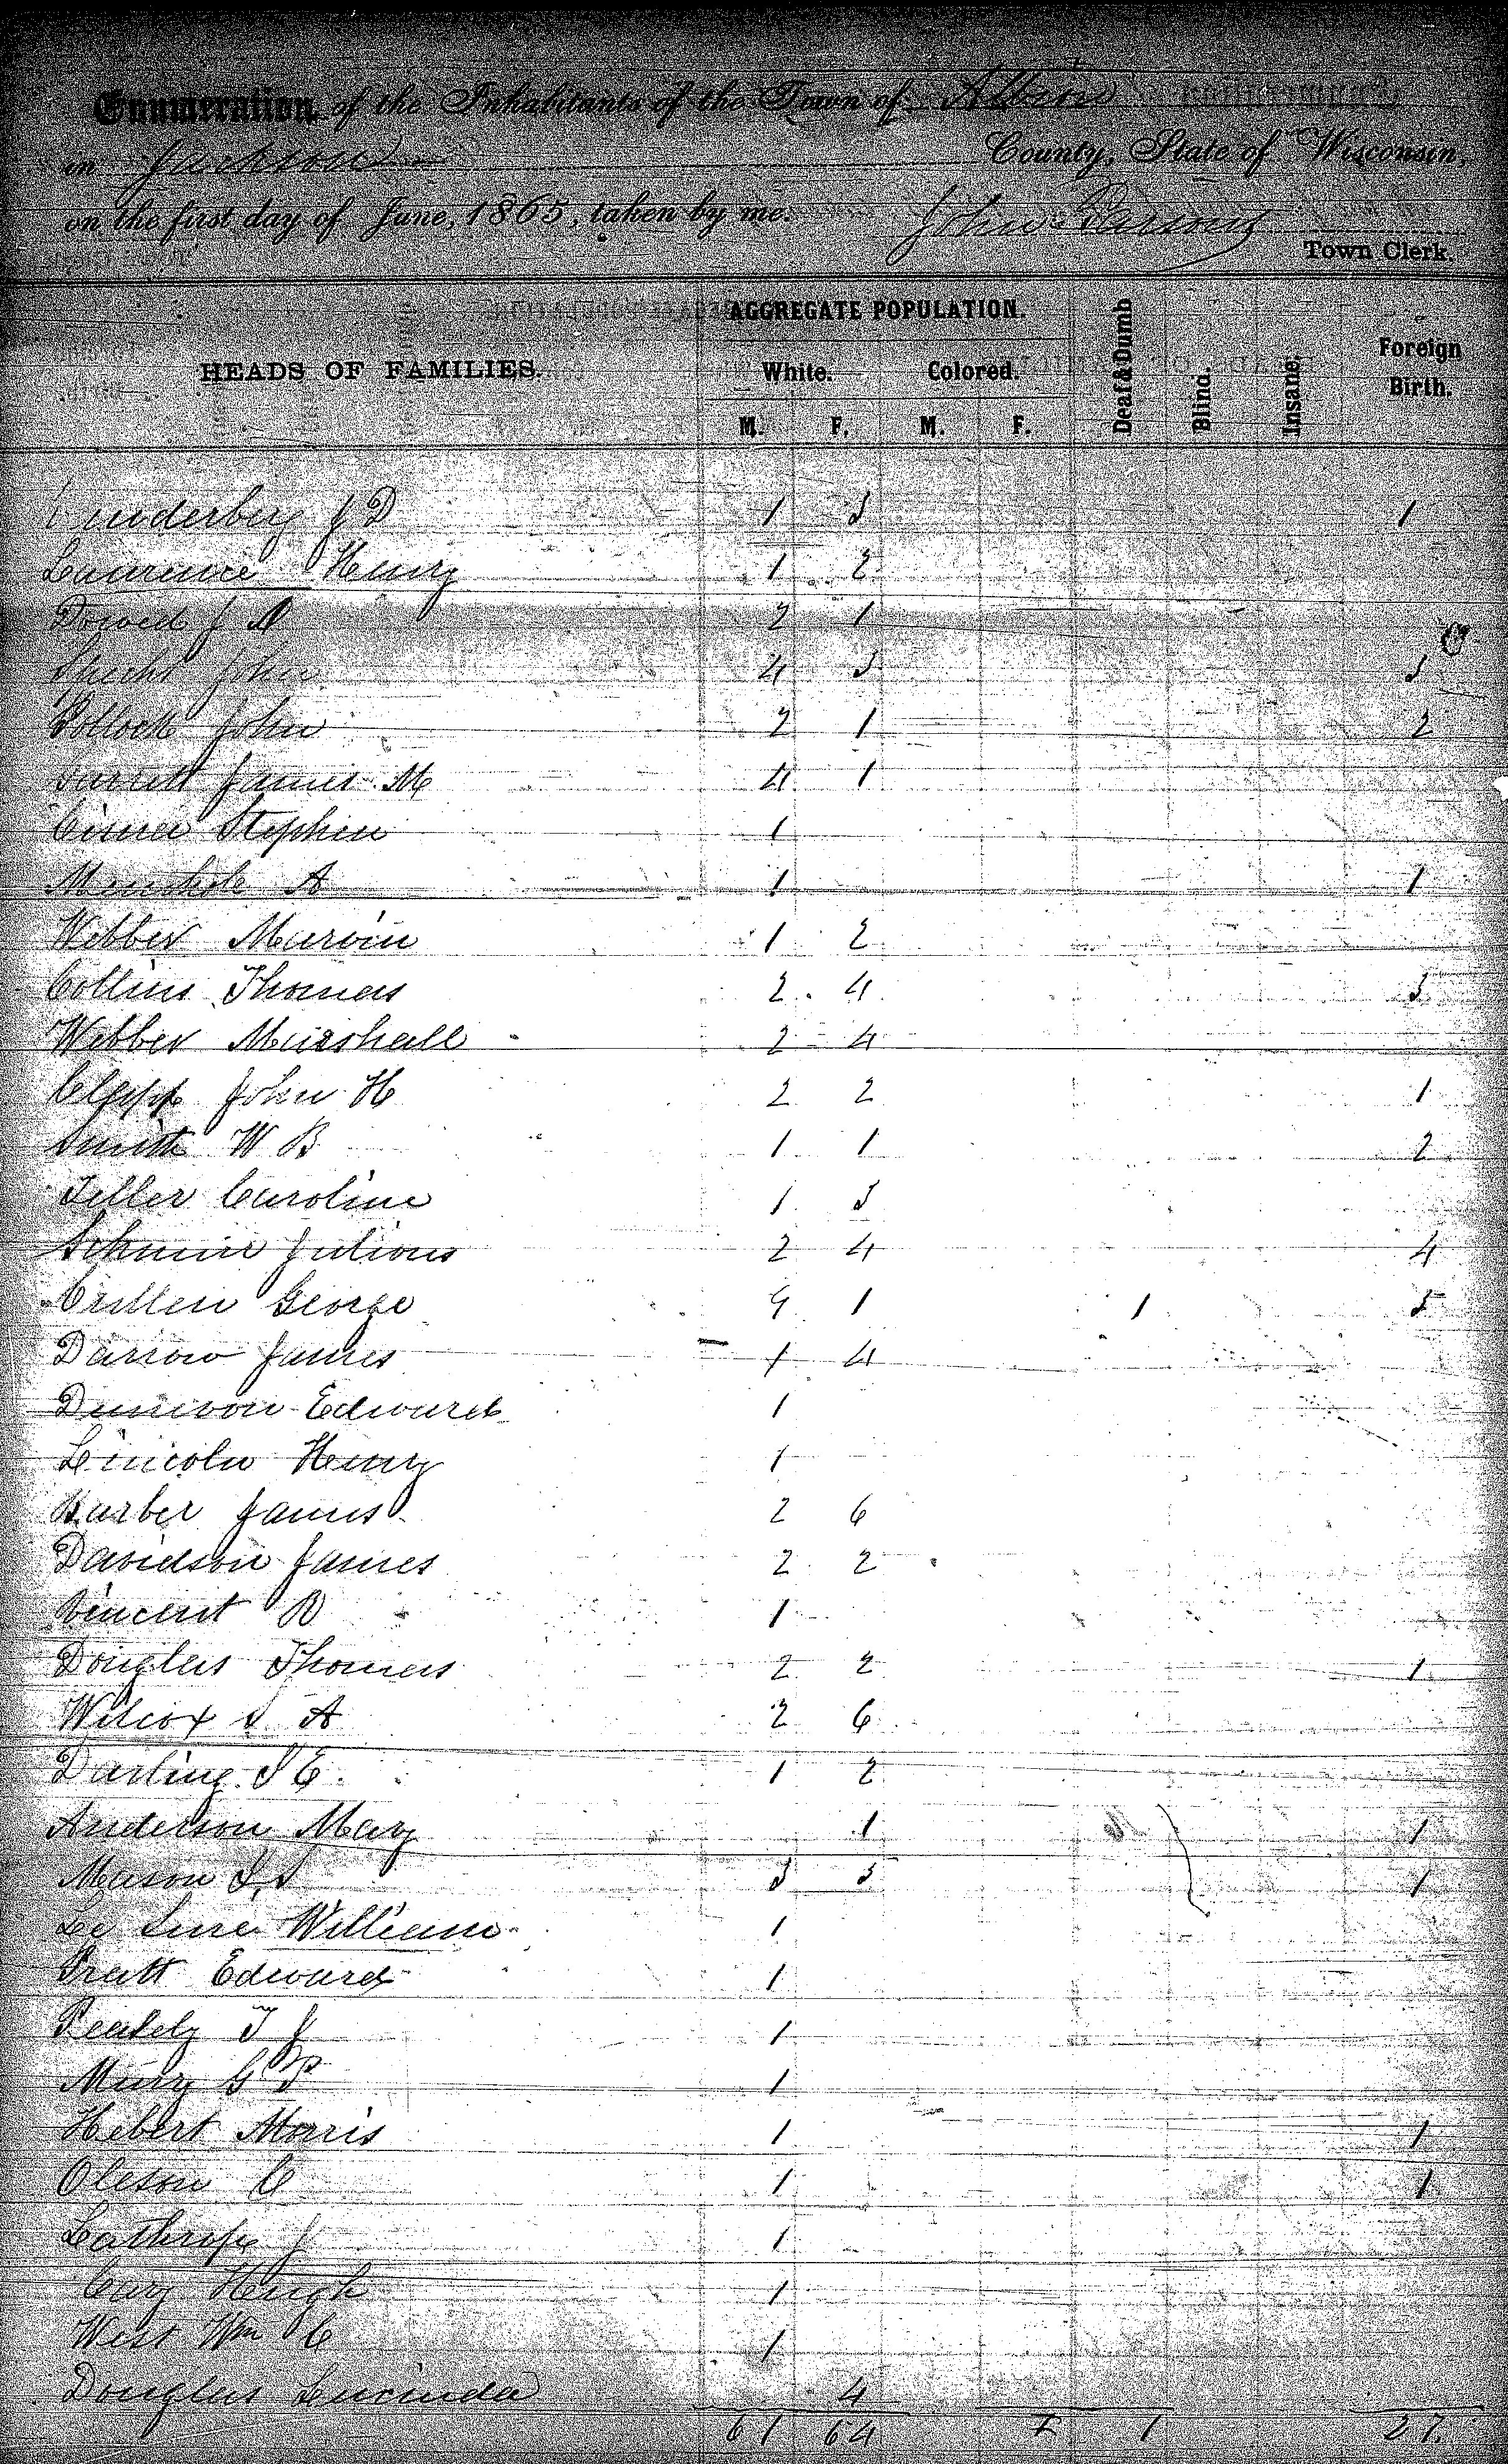 Enumeration of the Inhabitants of the Town of Albion
in Jackson County, State of Wisconsin,
on the first day of June, 1865, taken by me. John Parsons
Town Clerk.
AGGREGATE POPULATION.
HEADS OF FAMILIES. White. Colored. Deaf & Dumb Blind. Insane. Foreign Birth.
M. F. M. F.
J D 1 3 1
Lawrence Henry 1 2
Dowed J 2 1
John 4 3 3
Pollock John 2 1 2
James M 4 1
Stephen 1
A 1 1
Webber Marvin 1 2
Collins Thomas 2 4 3
Webber Marshall 2 4
Clapp John H 2 2 1
Smith W B 1 1 2
Teller Caroline 1 3
Julious 2 4 4
George 4 1 1 5
Darrow James 1 4
Edward 1
Lincoln Henry 1
Barber James 2 6
Davidson James 2 2
Vincent 1
Douglas Thomas 2 2 1
Wilcox S A 2 6
Darling S E. 1 2
Anderson Mary 1 1
Mason 3 3 1
Le William 1
Pratt Edward 1
T J 1
G P 1
Hebert Morris 1 1
Oleson C 1 1
Lathrop J 1
Cary Hugh 1
West Wm C 1
Douglas Lucinda 4
61 64 1 27.